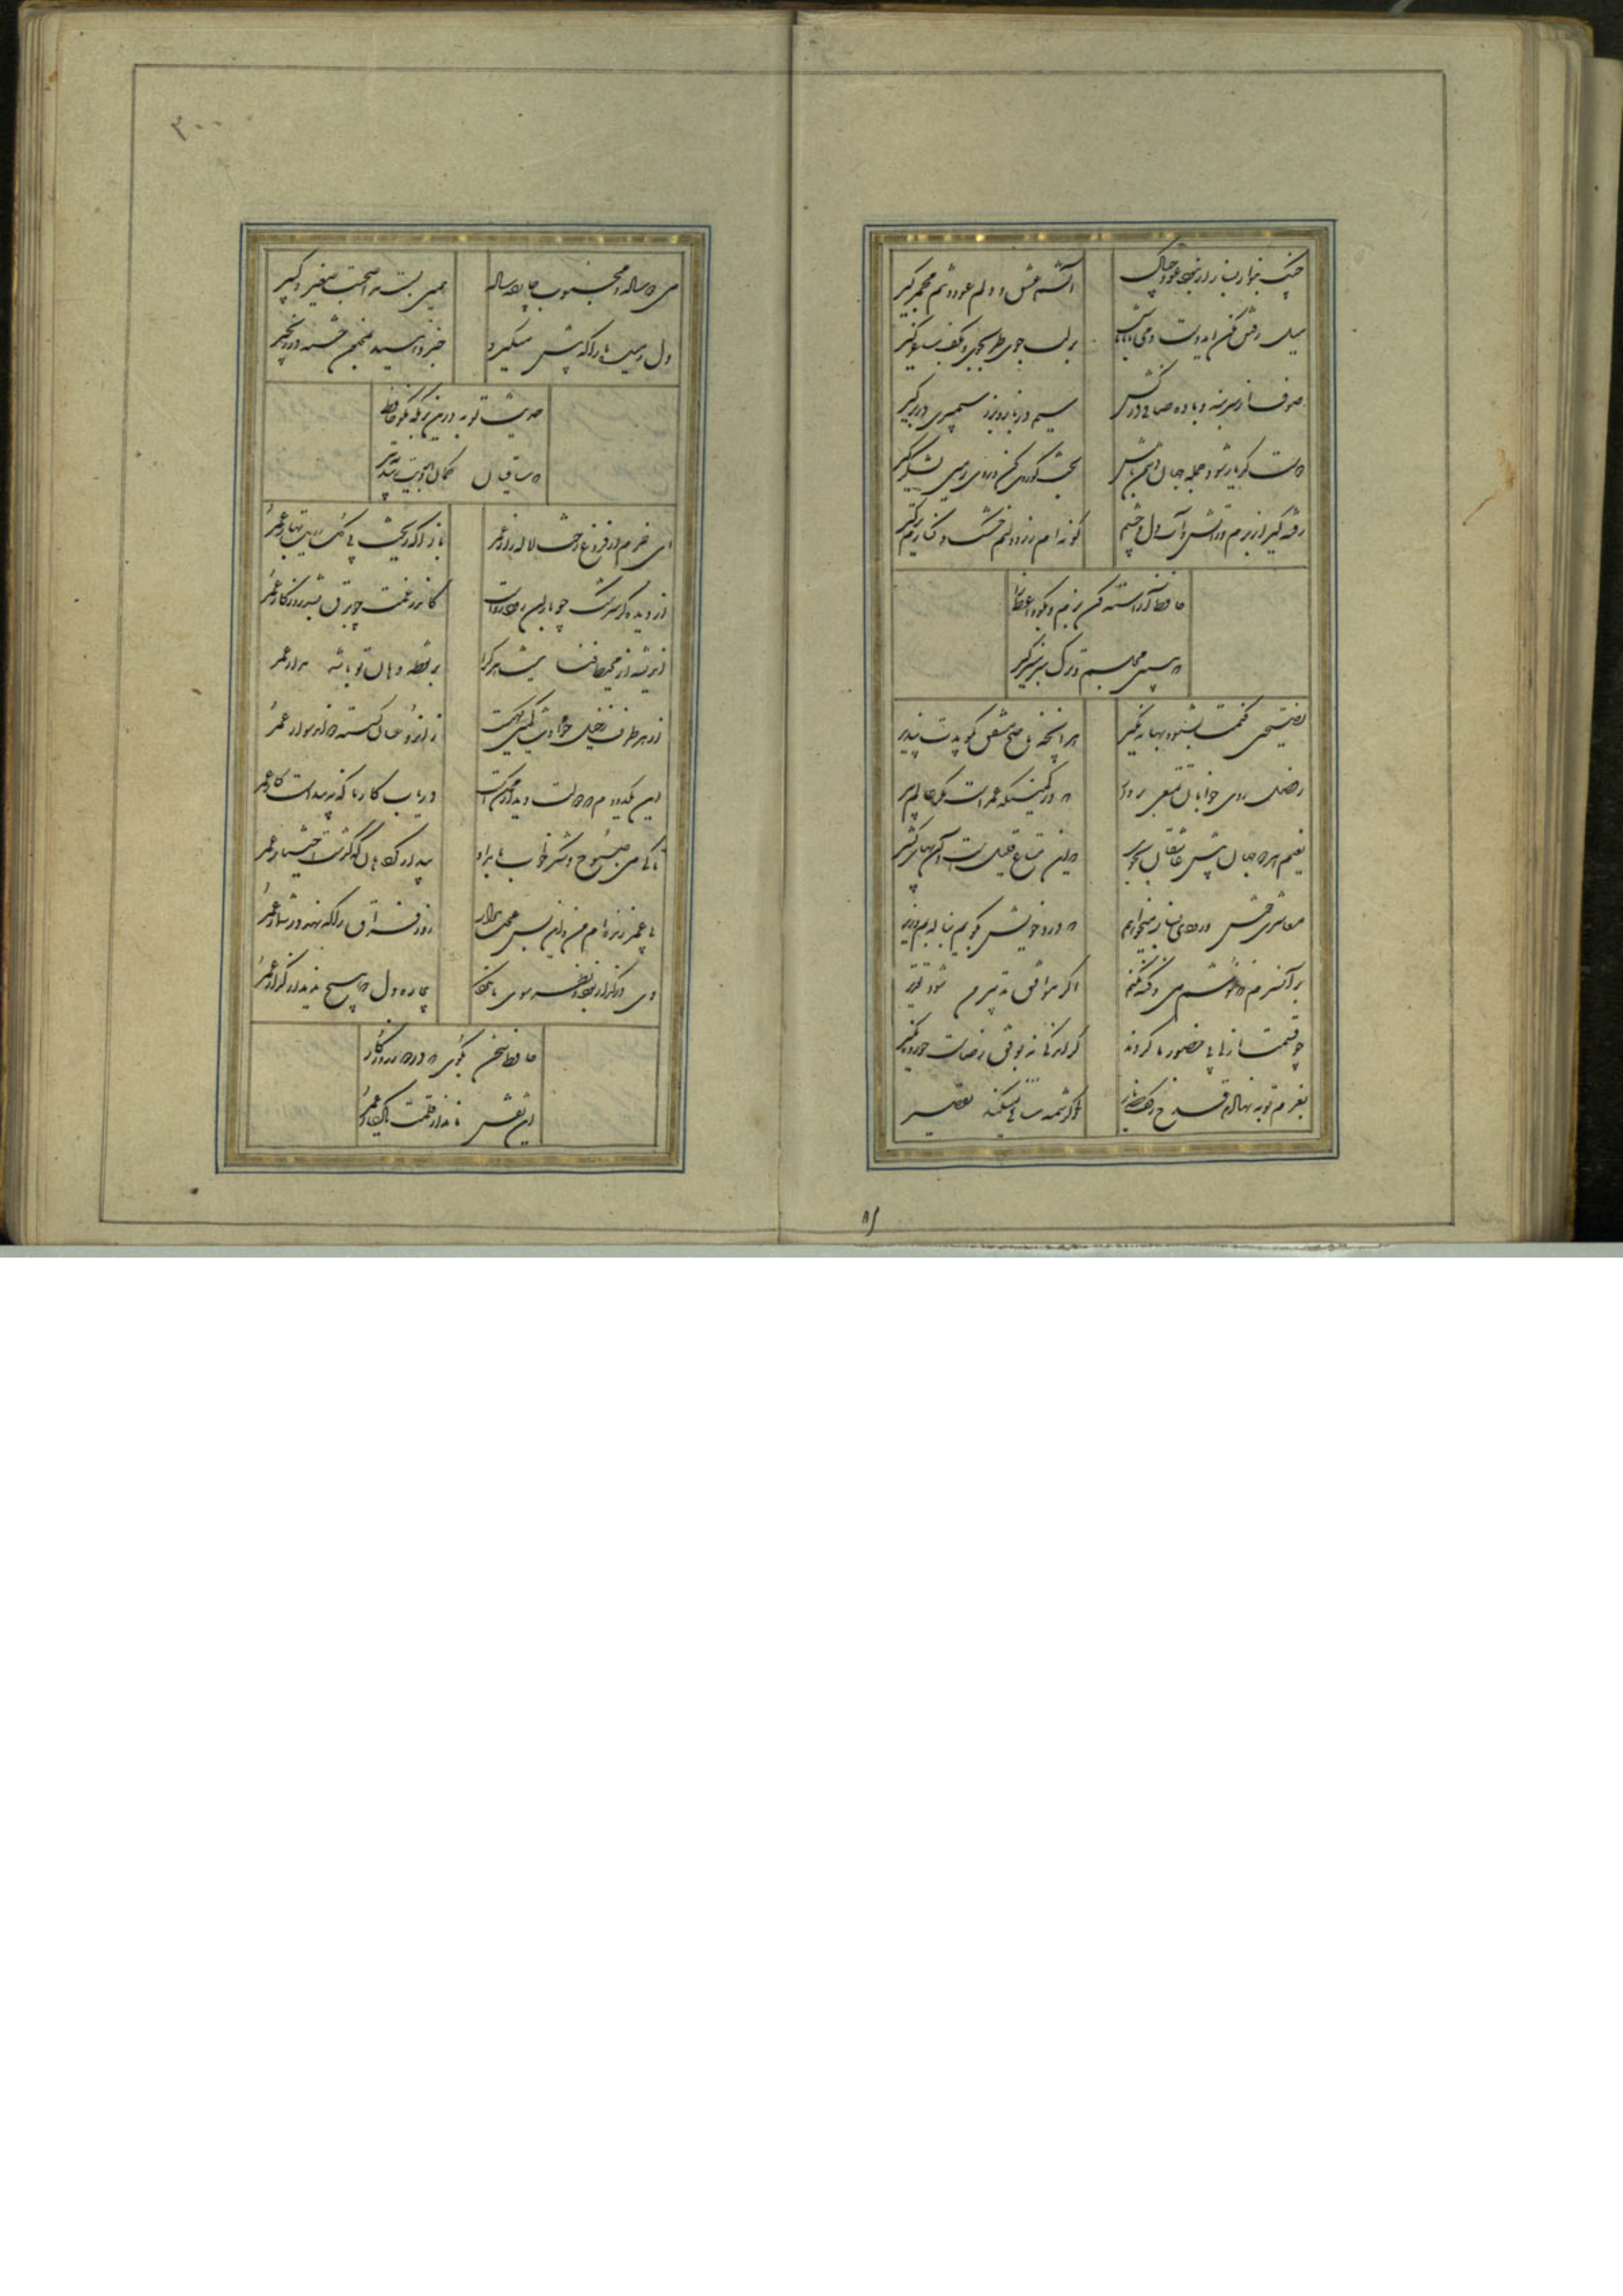 چنگ بنواز و بساز ار نبود عود چه باک آتشم عشق و دلم عود و تنم مجمر گیر
میل رفتن مکن ای دوست دمی با ما باش بر لب جوی طرب جوی و بکف ساغر گیر
صوف از سر بنه و باده صافی درکش سیم در باز و بزر سیمبری در بر گیر
دوست گو یار شو و جمله جهان دشمن باش بخت گو روی کن و روی زمین لشکر گیر
رفته گیر از برم وز آتش و آب دل و چشم گونه‌ام زرد و لبم خشک و کنارم تر گیر
حافظ آراسته کن بزم و بگو واعظ را
که ببین مجلسم و ترک سر منبر گیر
نصیحتی کنمت بشنو و بهانه مگیر هر آنچه ناصح مشفق بگویدت بپذیر
ز وصل روی جوانان تمتعی بردار که در کمینگه عمر است مکر عالم پیر
نعیم هر دو جهان پیش عاشقان بجوی که این متاع قلیل است و آن بهای کثیر
معاشری خوش و رودی بساز میخواهم که درد خویش بگویم بناله بم و زیر
بر آن سرم که ننوشم می و گنه نکنم اگر موافق تدبیر من شود تقدیر
چو قسمت ازلی بی حضور ما کردند گر اندکی نه بوفق رضاست خرده مگیر
بعزم توبه نهادم قدح ز کف صد بار ولی کرشمه ساقی نمیکند تقصیر
می دو ساله و محبوب چارده ساله همین بس است مرا صحبت صغیر و کبیر
دل رمیده ما را که پیش میگیرد خبر دهید بمجنون خسته در زنجیر
حدیث توبه درین بزمگه مگو حافظ
که ساقیان کمان ابرویت زنند بتیر
ای خرم از فروغ رخت لاله‌زار عمر بازآ که ریخت بی گل رویت بهار عمر
از دیده گر سرشک چو باران رود رواست کاندر غمت چو برق بشد روزگار عمر
اندیشه از محیط فنا نیست هر کرا بر نقطه دهان تو باشد مدار عمر
از هر طرف ز خیل حوادث کمین گهیست زان رو عنان گسسته دواند سوار عمر
این یکدو دم که دولت دیدار ممکن است دریاب کار ما که نه پیداست کار عمر
تا کی می صبوح و شکر خواب بامداد بیدار گرد هان که گذشت اختیار عمر
بی عمر زنده‌ام من و این بس عجب مدار روز فراق را که نهد در شمار عمر
دی در گذار بود و نظر سوی ما نکرد بیچاره دل که هیچ ندید از گذار عمر
حافظ سخن بگوی که در صفحه جهان
این نقش ماند از قلمت یادگار عمر
۲۰۰